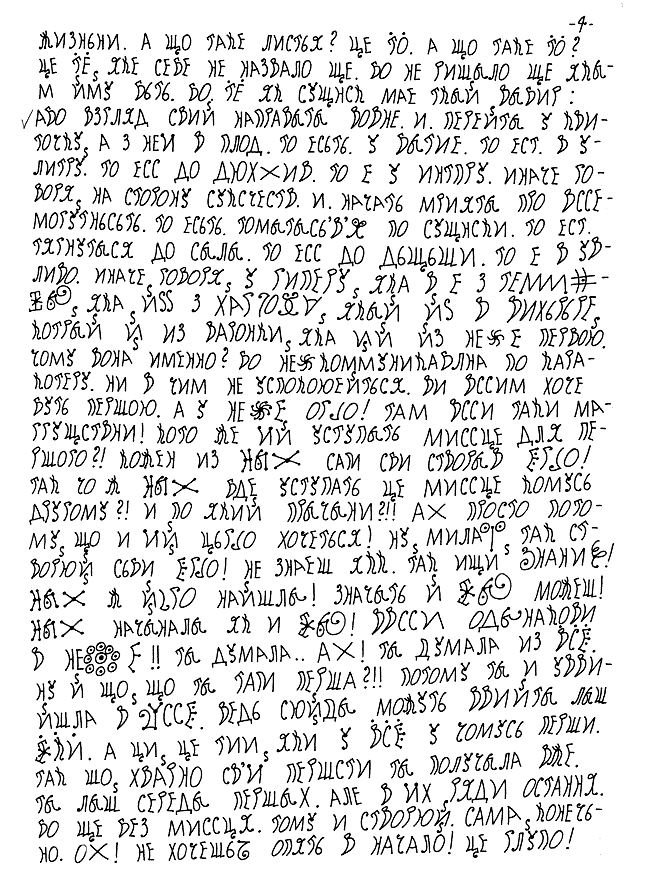 -4-
ЖИЗНЬНИ. А ЩО ТАКЕ ЛИСТЬЯ? ЦЕ ТО. А ЩО ТАКЕ ТО?
ЦЕ ТЕ, ЯКЕ СЕБЕ НЕ НАЗВАЛО ЩЕ. БО НЕ РИШЫЛО ЩЕ ЯКЫ-
М ЙМУ БЫТЬ. БО, ТЕ ЯК СУЩНСК МАЕ ТКЫЙ ВЫБИР:
АБО ВЗГЛЯД СВИЙ НАПРАВЫТЫ ВОВНЕ. И. ПЕРЕЙТЫ У КВИ-
ТОЧКУ, А З НЕИ В ПЛОД. ТО ЕСЬТЬ. У БЫТИЕ. ТО ЕСТ. В У-
ЛИТРУ. ТО ЕСС ДО ДЮХЖИВ. ТО Е У ИНТРУ. ИНАЧЕ ГО-
ВОРЯ, НА СТОРОНУ СУКСЧЕСТВ. И. НАЧАТЬ МРИЯТЫ ПРО ВССЕ-
МОГУТНЬСЬТЬ. ТО ЕСЬТЬ. ТОМЫТЫСЬ ПО СУЩНСКИ. ТО ЕСТ.
ТЯГНУТЫСЯ ДО СЫЛЫ. ТО ЕСС ДО ДЫЩЫЩИ. ТО Е В УВ-
ЛИВО. ИНАЧЕ, ГОВОРЯ, У ГИПЕРУ, ЯКА В Е З ГЕММИ
ЯКА, З ЯКЫЙ В ВИХЬРЬРЕ,
КОТРЫЙ ИЗ ВАРОНКИ, ЯКА ИЗ НЕ Е ПЕРВОЮ.
ЧОМУ ВОНА ИМЕННО? БО НЕ КОММУНИКАБЛНА ПО КАРА-
КОТЕРУ. НИ В ЧИМ НЕ УСПОКОЮЕЙТЬСЯ. ВИ ВССИМ ХОЧЕ
БУТЬ ПЕРШОЮ. А У НЕ Е ОГО! ТАМ ВССИ ТАКИ МА-
ГГУЩСТВНИ! КОГО ЖЕ ИЙ УСТУПЫТЬ МИССЦЕ ДЛЯ ПЕ-
РШОГО?! КОЖЕН ИЗ НЫХ САМ СВИ СТВОРЫВ ЕГО!
ТАК ЧО Ж НЫХ БДЕ УСТУПАТЬ ЦЕ МИССЦЕ КОМУСЬ
ДРУГОМУ?! И ПО ЯКИЙ ПРЫЧЫНИ?!! АХ ПРОСТО ПОТО-
МУ, ЩО И ИЙ ЦЬГО ХОЧЕТЬСЯ! НУ, МИЛА, ТАК СТ-
ВОРЮЙ СЬВИ ЕГО! НЕ ЗНАЕШ ЯК. ТАК ИЩИ ЗНАНИЕ!
НЫХ Ж ЙГО НАЙШЛЫ! ЗНАЧЫТЬ Й МОЖЕШ!
НЫХ НАЧЫНАЛЫ ЯК И! ВВССИ ОДЫНАКОВИ
В НЕ Е!! ТЫ ДУМАЛА.. АХ! ТЫ ДУМАЛА ИЗ ВСЕ.
НУ Й ЩО, ЩО ТЫ ТАМ ПЕРША?!! ПОТОМУ ТЫ И УВВИ-
ЙШЛА В УССЕ. ВЕДЬ СЮЙДЫ МОЖУТЬ ВВИЙТЫ ЛЫШ
А ЦИ, ЦЕ ТИИ, ЯКИ У ВСЕ У ЧОМУСЬ ПЕРШИ.
ТАК ШО, ХВАРНО СВИ ПЕРШСТИ ТЫ ПОЛУЧАЛА ВЖЕ.
ТЫ ЛЫШ СЕРЕДЫ ПЕРШЫХ. АЛЕ В ИХ, РЯДИ ОСТАННЯ.
БО ЩЕ БЕЗ МИССЦЯ. ТОМУ И СТВОРЮЙ. САМА, КОНЕЧЬ-
НО. ОХ! НЕ ХОЧЕШЬ ОПЯТЬ В НАЧАЛО! ЦЕ ГЛУПО!